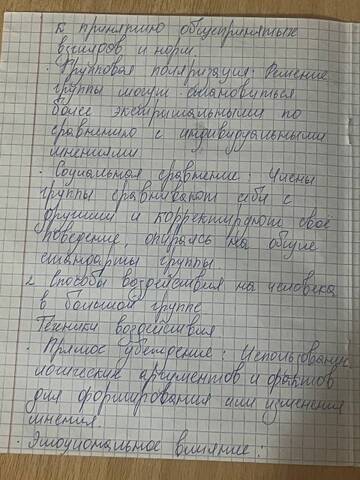 к принятию общепринятых
взглядов и норм
· Групповая поляризация: Решение
группы могут становиться
более экстримальными по
сравнению с индивидуальными
мнениями
· Социальная сравнение: Члены
группы сравнивают себя с
другими и корректируют своё
поведение, опираясь на общие
стандарты группы
2 Способы воздействия на человека
в большой группе
Техники воздействия
· Прямое убеждение: Использование
логических аргументов и фактов
для формирования или изменения
мнения.
· Эмоциональное влияние: